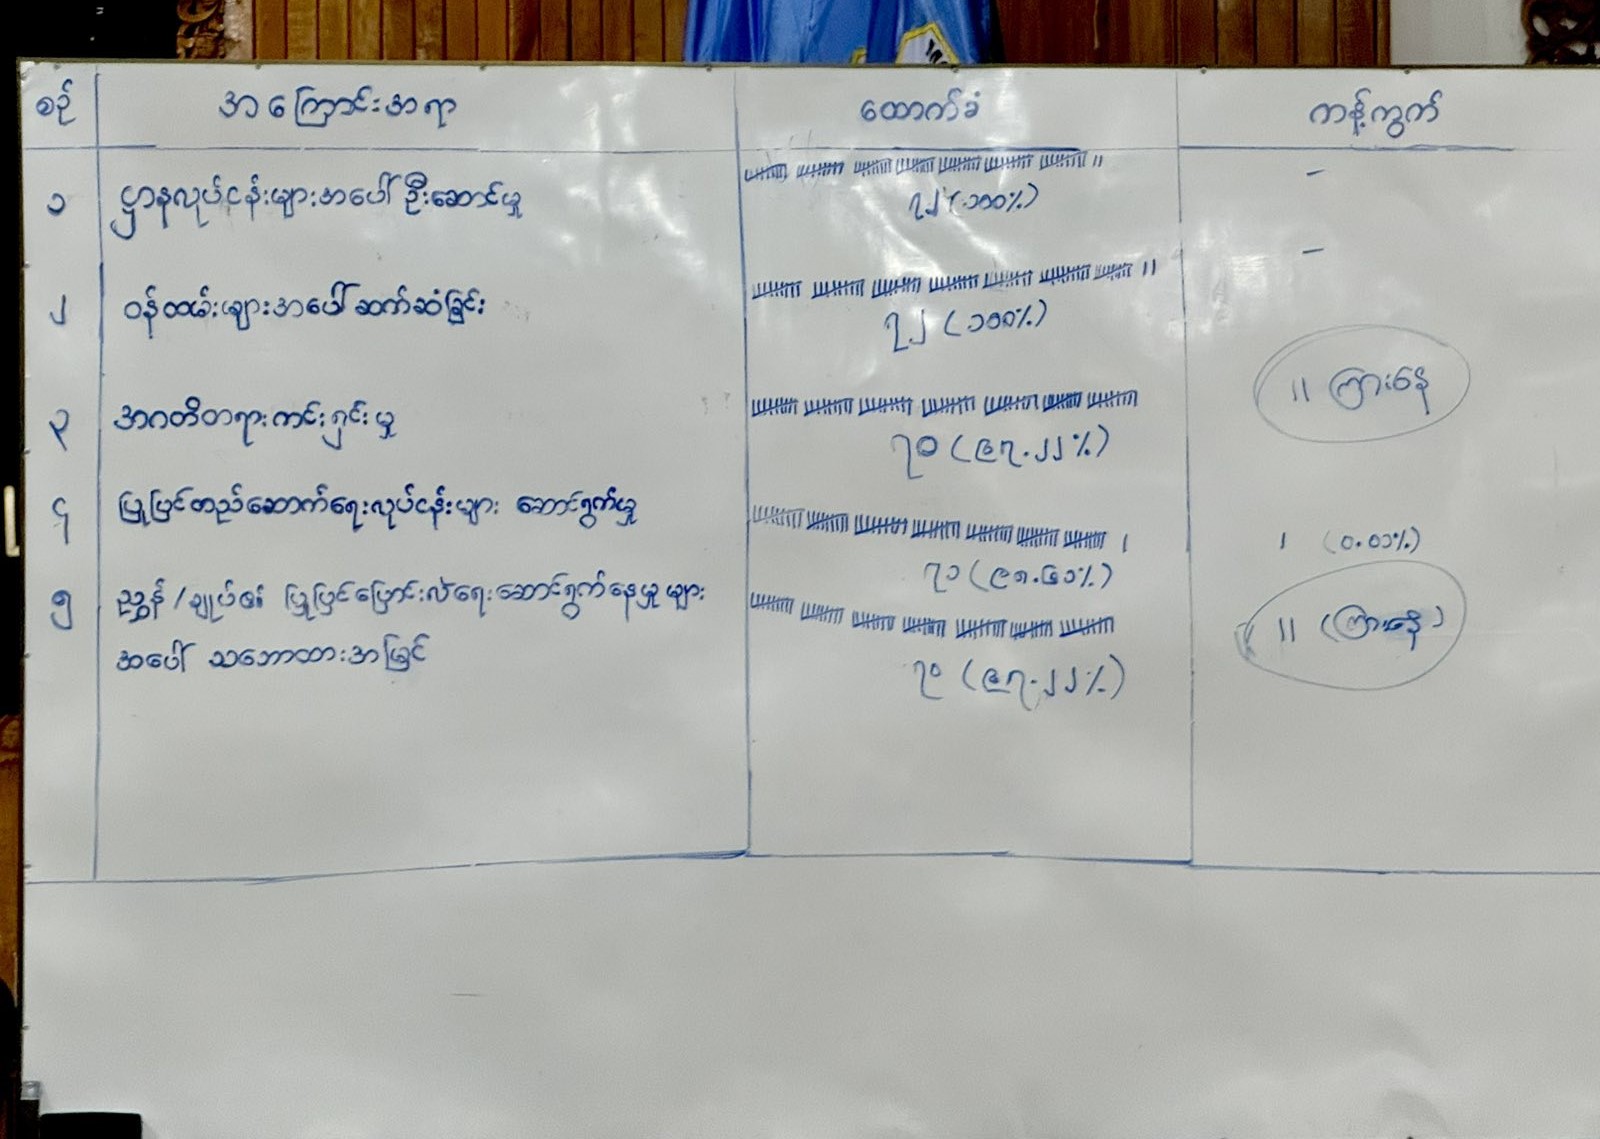 စဉ် အကြောင်းအရာ ထောက်ခံ ကန့်ကွက်
၁ ဌာနလုပ်ငန်းများအပေါ် ဦးဆောင်မှု ၇၂ (၁၀၀%) –
၂ ဝန်ထမ်းများအပေါ် ဆက်ဆံခြင်း ၇၂ (၁၀၀%) –
၃ အဂတိတရားကင်းရှင်းမှု ၇၀ (၉၇.၂၂%) ။ ကြားနေ
၄ ပြုပြင်တည်ဆောက်ရေးလုပ်ငန်းများ ဆောင်ရွက်မှု ၇၁ (၉၈.၆၁%) ၊ (၀.၀၁%)
၅ ညွှန်/ချုပ်၏ ပြုပြင်ပြောင်းလဲရေးဆောင်ရွက်နေမှုများ
အပေါ် သဘောထားအမြင် ၇၀ (၉၇.၂၂%) ။ (ကြားနေ)